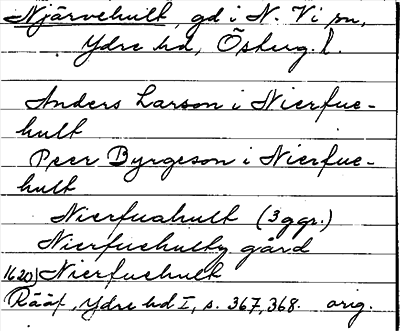 Njärvehult, gd i N. Vi sn,
Ydre hd, Österg. l.
Anders Larson i Nierfue-
hult
Peer Byrgeson i Nierfue-
hult
Nierfuahult (3 ggr.)
Nierfuehultz gård
1620) Nierfuehult
Rääf, Ydre hd I, s. 367, 368. orig.